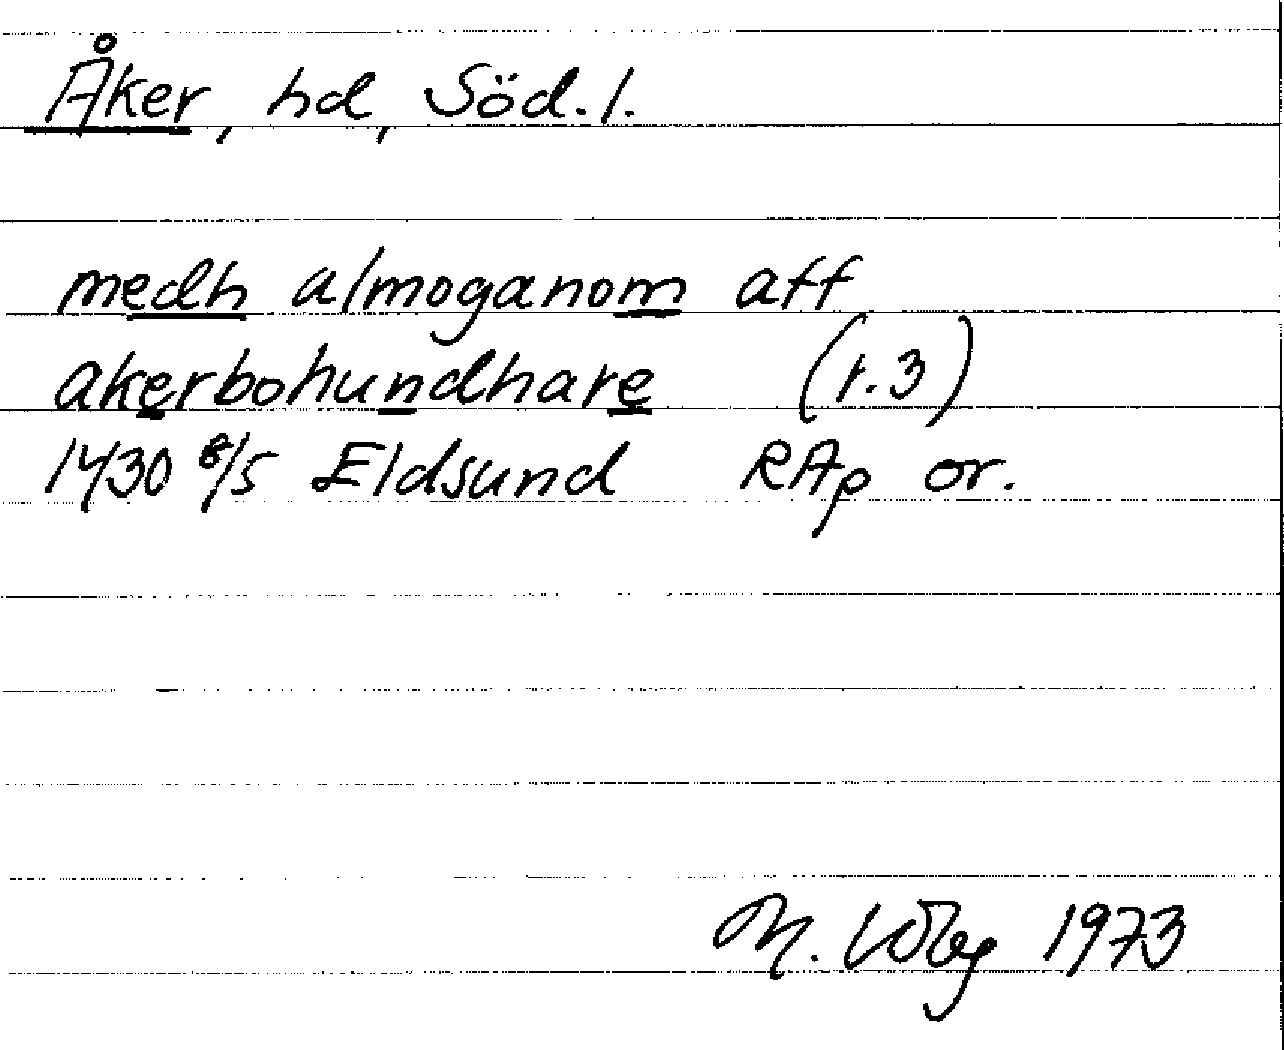 Åker, hd, Söd. l.
medh almoganom aff
akerbohundhare (r.3)
1430 8/5 Eldsund RAp or.
M. Wbg 1973